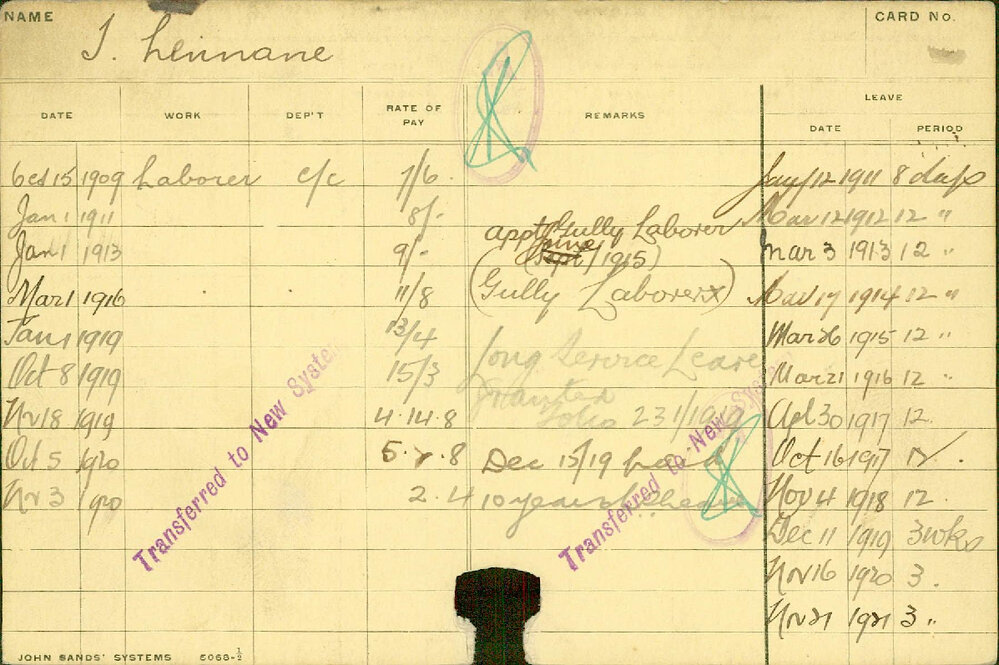 NAME
CARD No.
DATE WORK DEP'T RATE OF PAY REMARKS LEAVE DATE PERIOD
Oct 15 1909 Laborer c/c 7/6 Jany 12 1911 8 days
Jan 1 1911 8/- Mar 12 1912 12 "
Jan 1 1913 9/- appt Gully Laborer Mar 3 1913 12 "
June /1915)
Mar 1 1916 11/8 (Gully Laborer) Mar 17 1914 12 "
Jany 1919 13/4 Mar 26 1915 12 "
Oct 8 1919 15/3 Long Service Leave Mar 21 1916 12 "
Granted
Nv 18 1919 4.14.8 Folio 231/1919 Apl 30 1917 12
Oct 5 1920 5.7.8 Dec 15/19 Oct 16 1917 12
Nv 3 1920 2.4 10 years Nov 4 1918 12
Dec 11 1919 3 wks
Nov 16 1920 3
Nov 21 1921 3 "
Transferred to New System
Transferred to New System
JOHN SANDS' SYSTEMS 5068-½